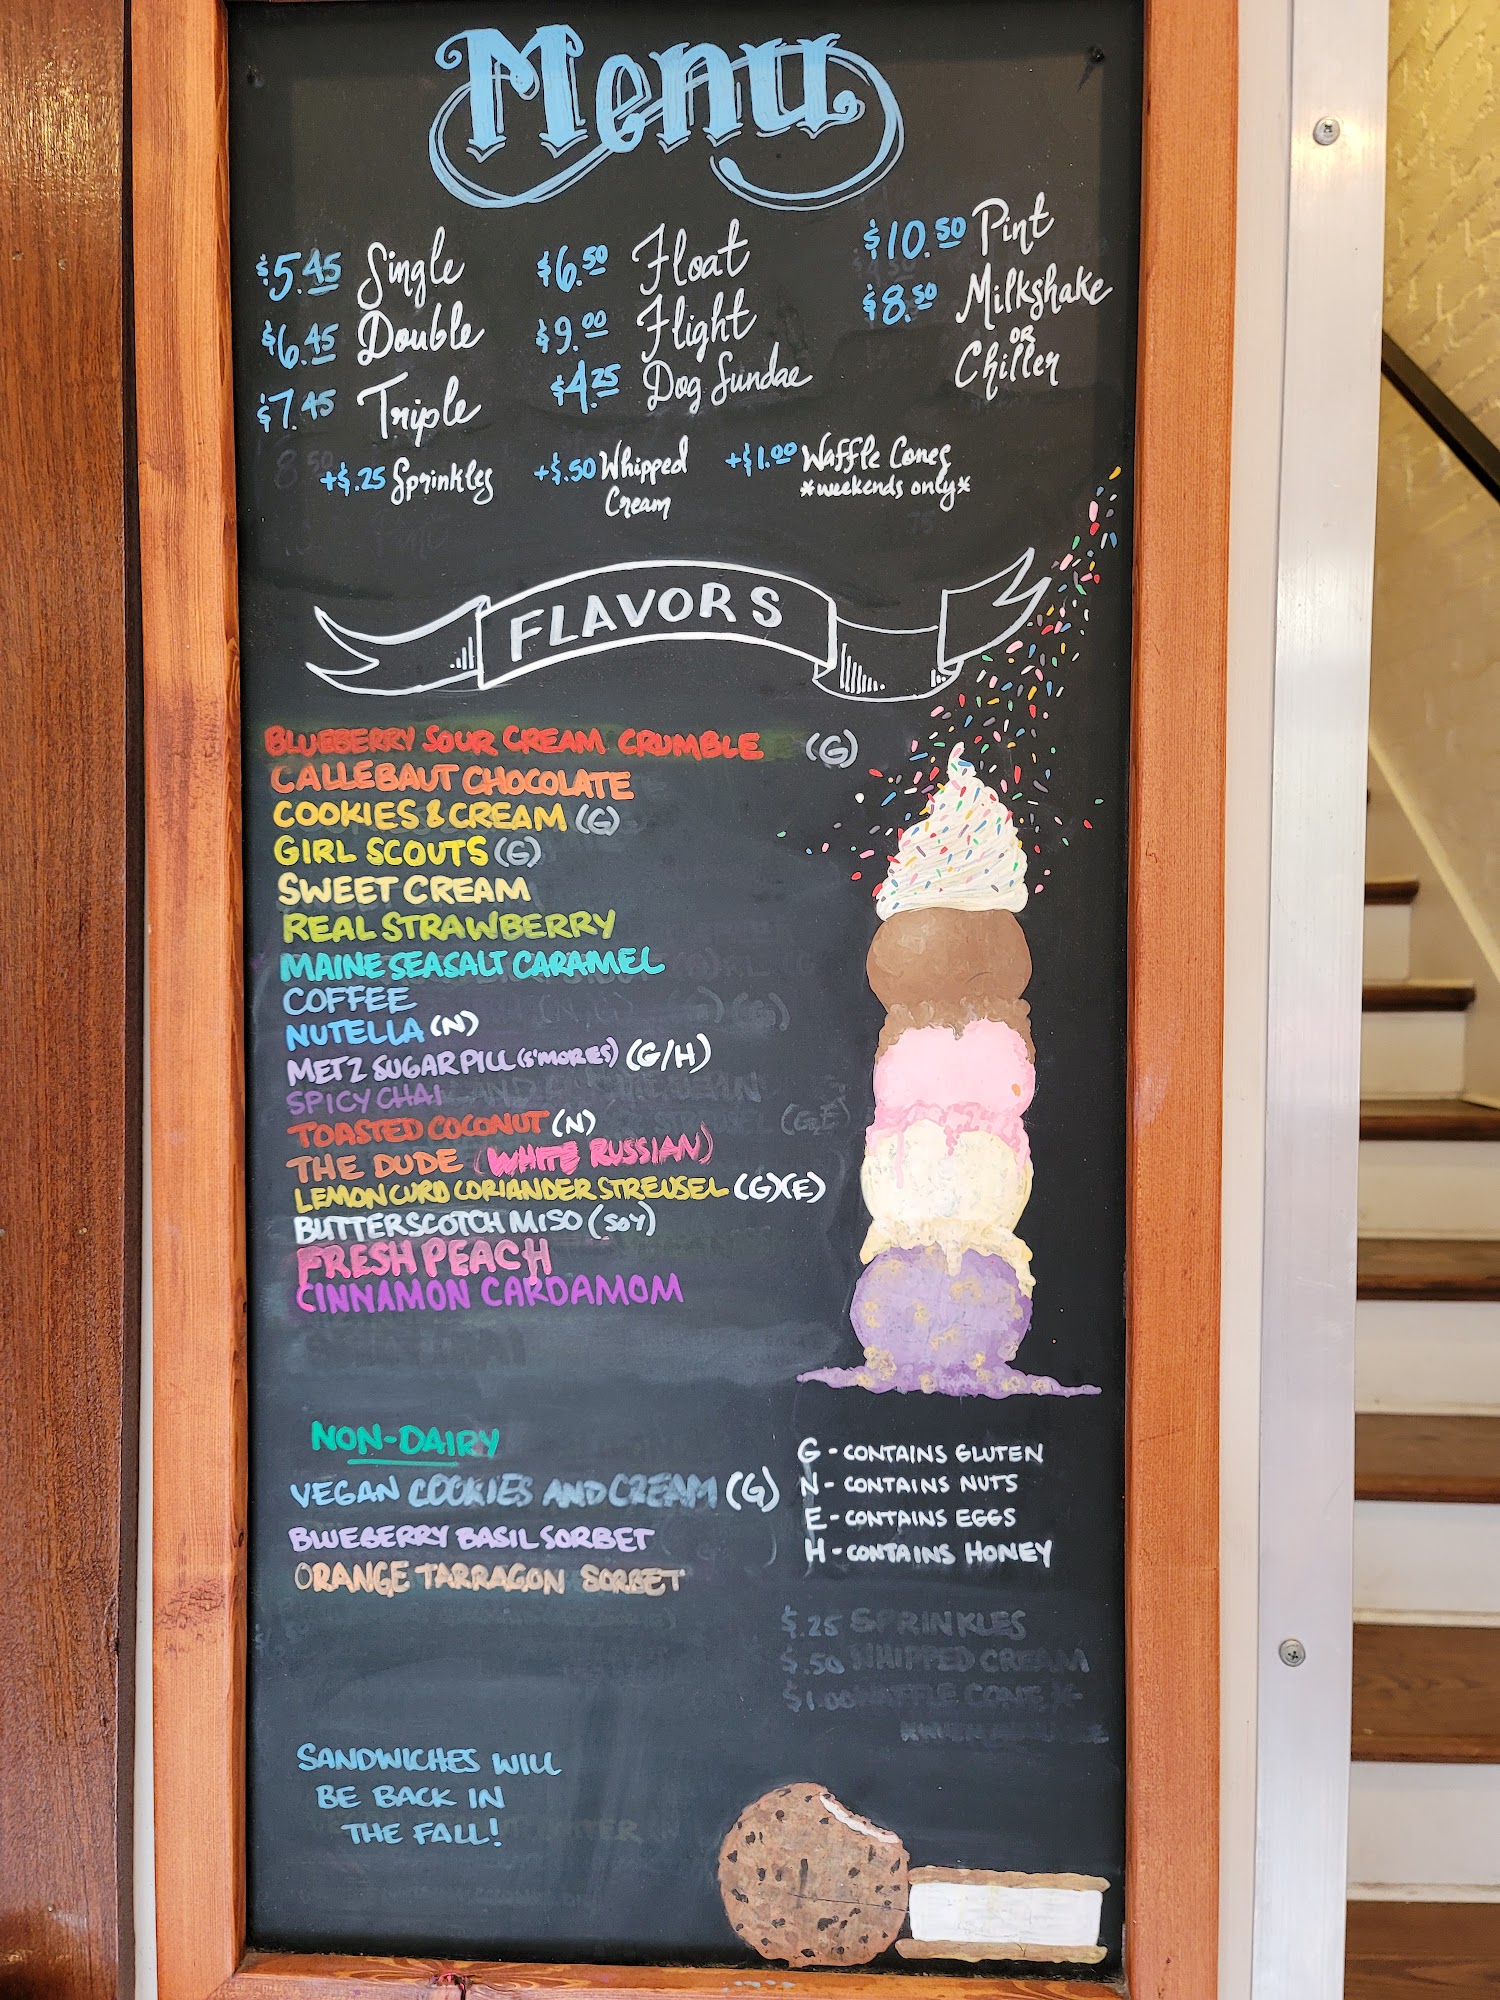 Menu
$5.45 Single
$6.45 Double
$7.45 Triple
$6.50 Float
$9.00 Flight
$4.25 Dog Sundae
$10.50 Pint
$8.50 Milkshake
OR
Chiller
+$.25 Sprinkles
+$.50 Whipped
Cream
+$1.00 Waffle Cones
*weekends only*
FLAVORS
BLUEBERRY SOUR CREAM CRUMBLE (G)
CALLEBAUT CHOCOLATE
COOKIES & CREAM (G)
GIRL SCOUTS (G)
SWEET CREAM
REAL STRAWBERRY
MAINE SEASALT CARAMEL
COFFEE
NUTELLA (N)
METZ SUGAR PILL (S'MORES) (G/H)
SPICY CHAI
TOASTED COCONUT (N)
THE DUDE (WHITE RUSSIAN)
LEMON CURD CORIANDER STREUSEL (G)(E)
BUTTERSCOTCH MISO (SOY)
FRESH PEACH
CINNAMON CARDAMOM
NON-DAIRY
VEGAN COOKIES AND CREAM (G)
BLUEBERRY BASIL SORBET
ORANGE TARRAGON SORBET
G - CONTAINS GLUTEN
N - CONTAINS NUTS
E - CONTAINS EGGS
H - CONTAINS HONEY
$.25 SPRINKLES
$.50 WHIPPED CREAM
$1.00 WAFFLE CONE
SANDWICHES WILL
BE BACK IN
THE FALL!